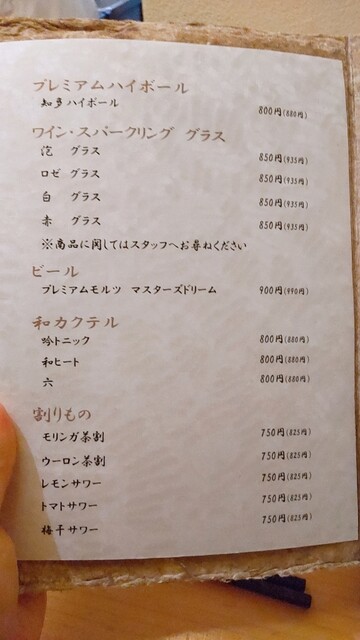 プレミアムハイボール
知多ハイボール 800円(880円)
ワイン・スパークリング グラス
泡 グラス 850円(935円)
ロゼ グラス 850円(935円)
白 グラス 850円(935円)
赤 グラス 850円(935円)
※商品に関してはスタッフへお尋ねください
ビール
プレミアムモルツ マスターズドリーム 900円(990円)
和カクテル
吟トニック 800円(880円)
和ヒート 800円(880円)
六 800円(880円)
割りもの
モリンガ茶割 750円(825円)
ウーロン茶割 750円(825円)
レモンサワー 750円(825円)
トマトサワー 750円(825円)
梅干サワー 750円(825円)